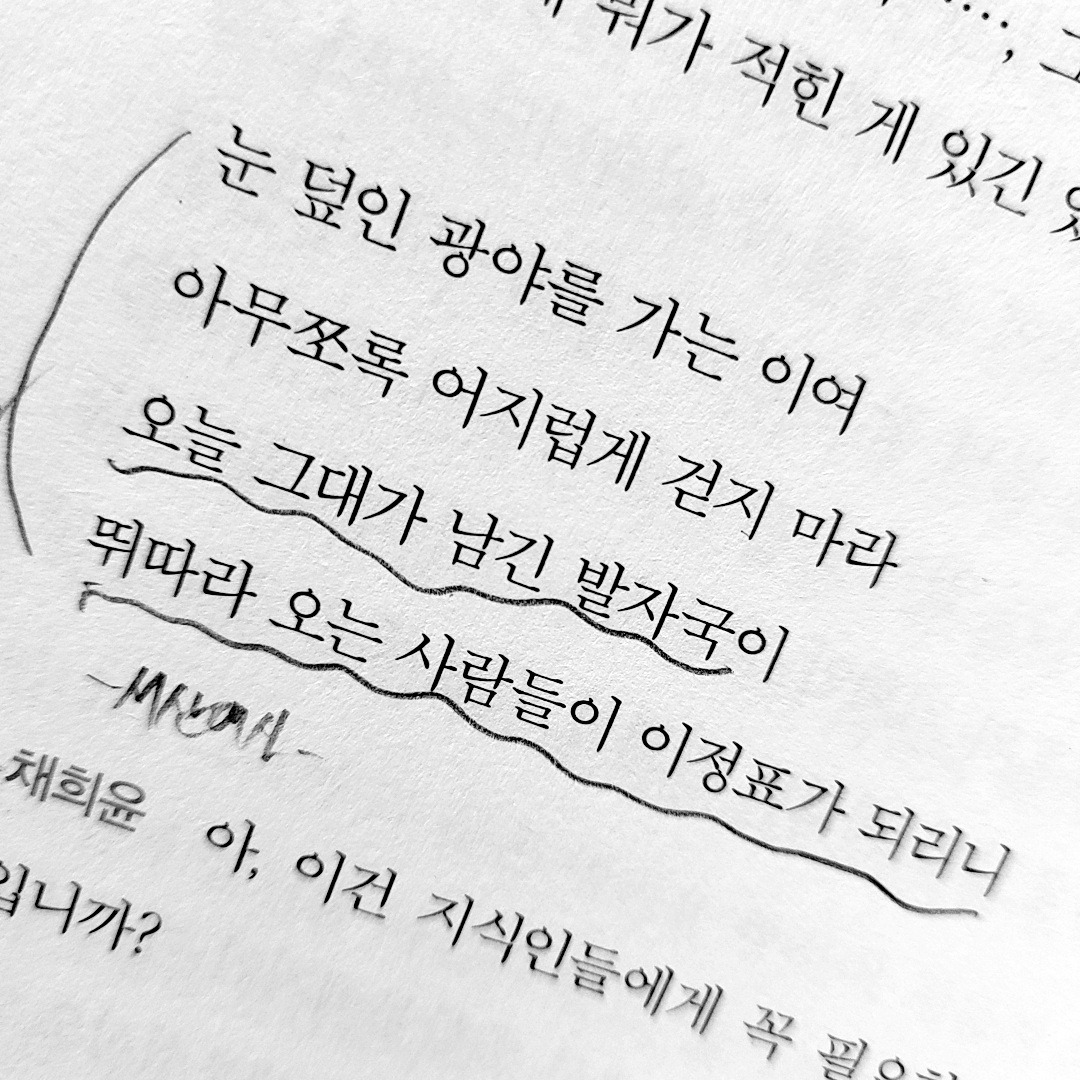 뭐가 적힌 게 있긴
눈 덮인 광야를 가는 이여
아무쪼록 어지럽게 걷지 마라
오늘 그대가 남긴 발자국이
뛰따라 오는 사람들이 이정표가 되리니
채희윤 아, 이건 지식인들에게 꼭
입니까?